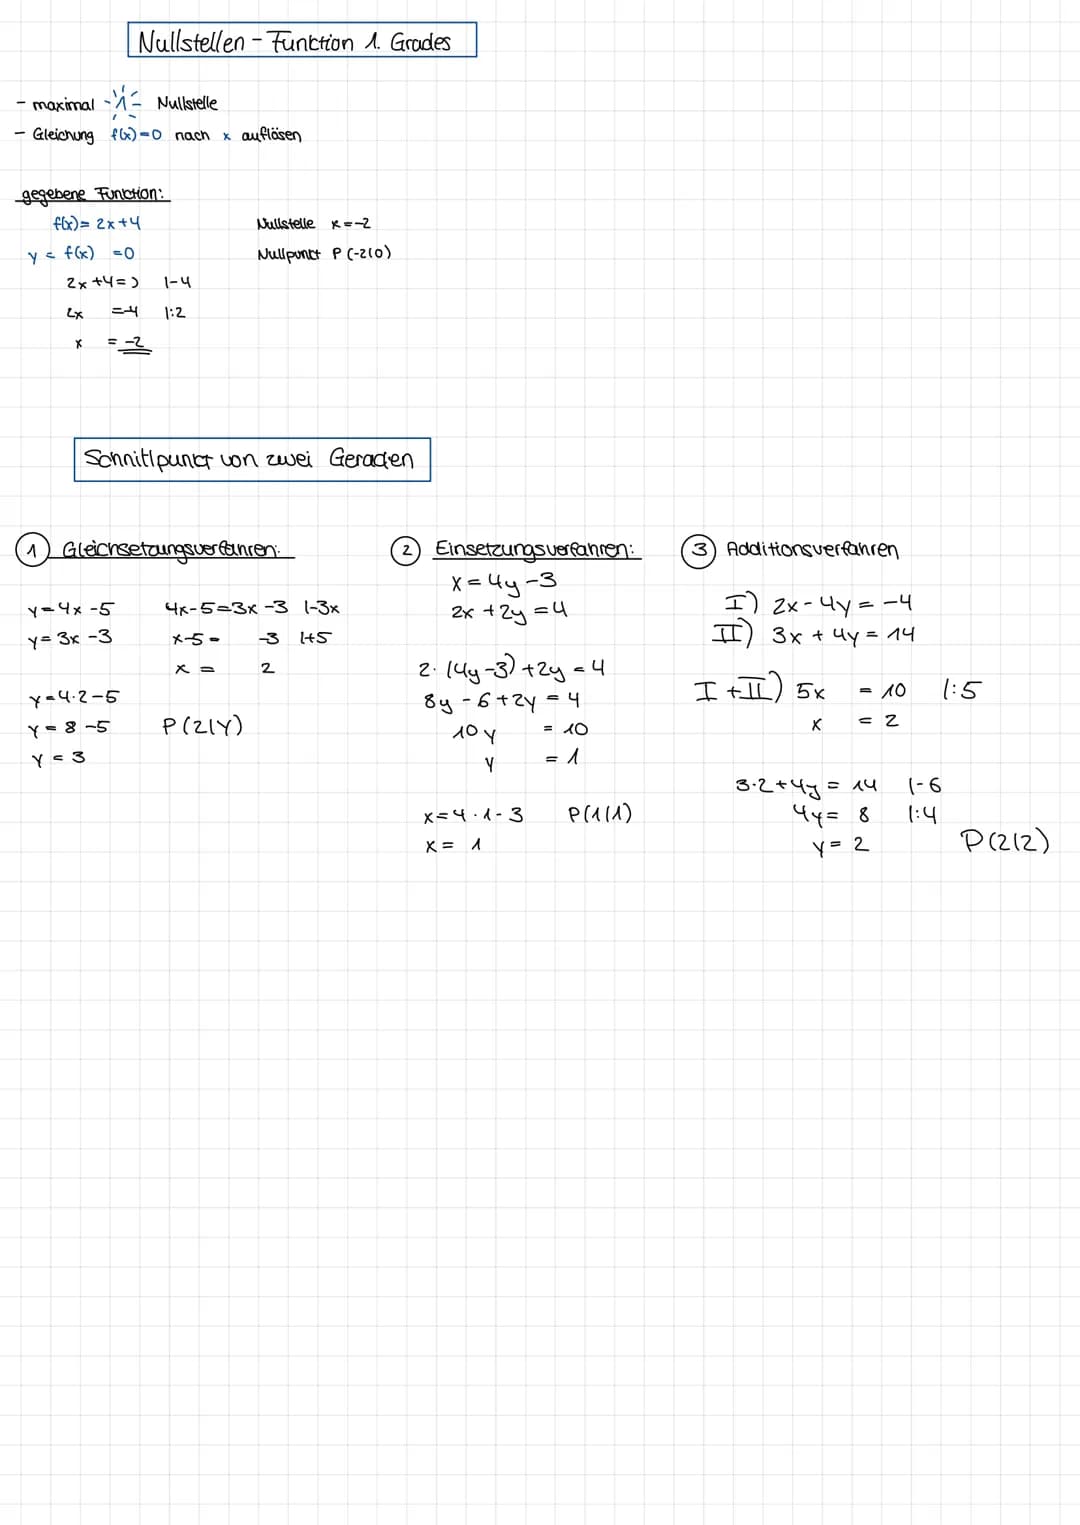 Nullstellen - Funktion 1. Grades
- maximal 1 Nullstelle
- Gleichung f(x)=0 nach x auflösen
gegebene Funktion:
f(x)= 2x+4
y = f(x) =0
2x+4=0 |-4
2x =-4 |:2
x = -2
Nullstelle x=-2
Nullpunkt P(-2|0)
Schnittpunkt von zwei Geraden
1 Gleichsetzungsverfahren:
y=4x-5
y=3x-3
4x-5=3x-3 |-3x
x-5= -3 |+5
x = 2
y=4·2-5
y=8-5
y=3
P(2|Y)
2 Einsetzungsverfahren:
x=4y-3
2x+2y=4
2·(4y-3)+2y=4
8y-6+2y=4
10y = 10
y = 1
x=4·1-3
x= 1
P(1|1)
3 Additionsverfahren
I) 2x-4y=-4
II) 3x+4y=14
I+II) 5x = 10 |:5
x = 2
3·2+4y=14 |-6
4y=8 |:4
y=2
P(2|2)